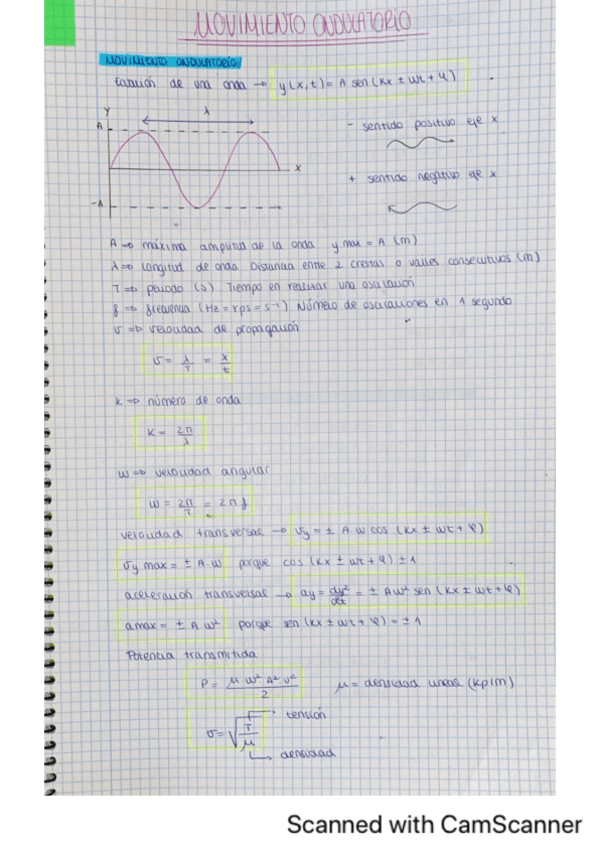 MOVIMIENTO ONDULATORIO
MOVIMIENTO ONDULATORIO
Ecuación de una onda → y(x,t) = A sen (Kx ± wt + φ)
Y
λ
A
x
-A
- sentido positivo eje x
+ sentido negativo eje x
A => máxima amplitud de la onda y max = A (m)
λ => Longitud de onda Distancia entre 2 crestas o valles consecutivos (m)
T => periodo (s) Tiempo en realizar una oscilación
f => frecuencia (Hz = rps = s⁻¹) Número de oscilaciones en 1 segundo
v => velocidad de propagación
v = λ/T = x/t
K => número de onda
K = 2π/λ
w => velocidad angular
w = 2π/T = 2πf
velocidad transversal → vy = ± A w cos (Kx ± wt + φ)
vy max = ± A·w porque cos (Kx ± wt + φ) ± 1
aceleración transversal → ay = dy²/dt = ± Aw² sen (Kx ± wt + φ)
amax = ± A w² porque sen (Kx ± wt + φ) = ± 1
Potencia transmitida
P = μ w² A² v² / 2 μ = densidad lineal (kp/m)
v = √(T/μ) tensión
densidad
Scanned with CamScanner